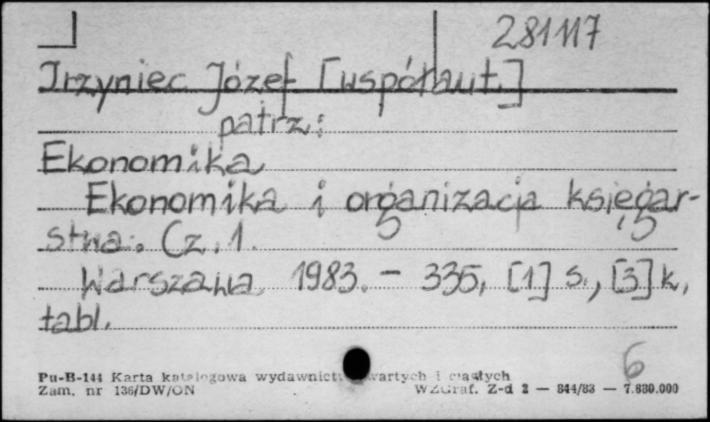 281117
Trzyniec Józef [współaut.]
patrz:
Ekonomika
Ekonomika i organizacja księgar-
stwa. Cz. 1.
Warszawa 1983. - 335, [1] s., [3] k,
tabl.
6
Pu-B-144 Karta katalogowa wydawnictw zwartych i ciągłych
Zam. nr 136/DW/ON WZGraf. Z-d 2 — 844/83 — 7.880.000